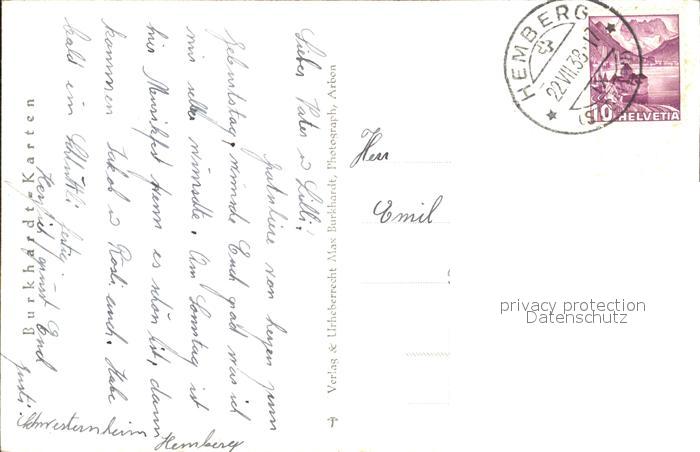 Lieber Vater u Lilli!
Gratuliere von herzen zum
Geburtstag, wünsche Euch grad was ich
mir selber wünschte. Am Sonntag ist
hier Musikfest wenn es schön ist, dann
kommen Jakob u Rösli auch. Habe
bald ein fertig.
Herzlich grüsst Euch
Gusti.
Schwesternheim
Hemberg
Burkhardt-Karten
Verlag & Urheberrecht Max Burkhardt, Photograph, Arbon
HEMBERG
22.VII.38.17
10 HELVETIA
Herr
Emil
privacy protection
Datenschutz